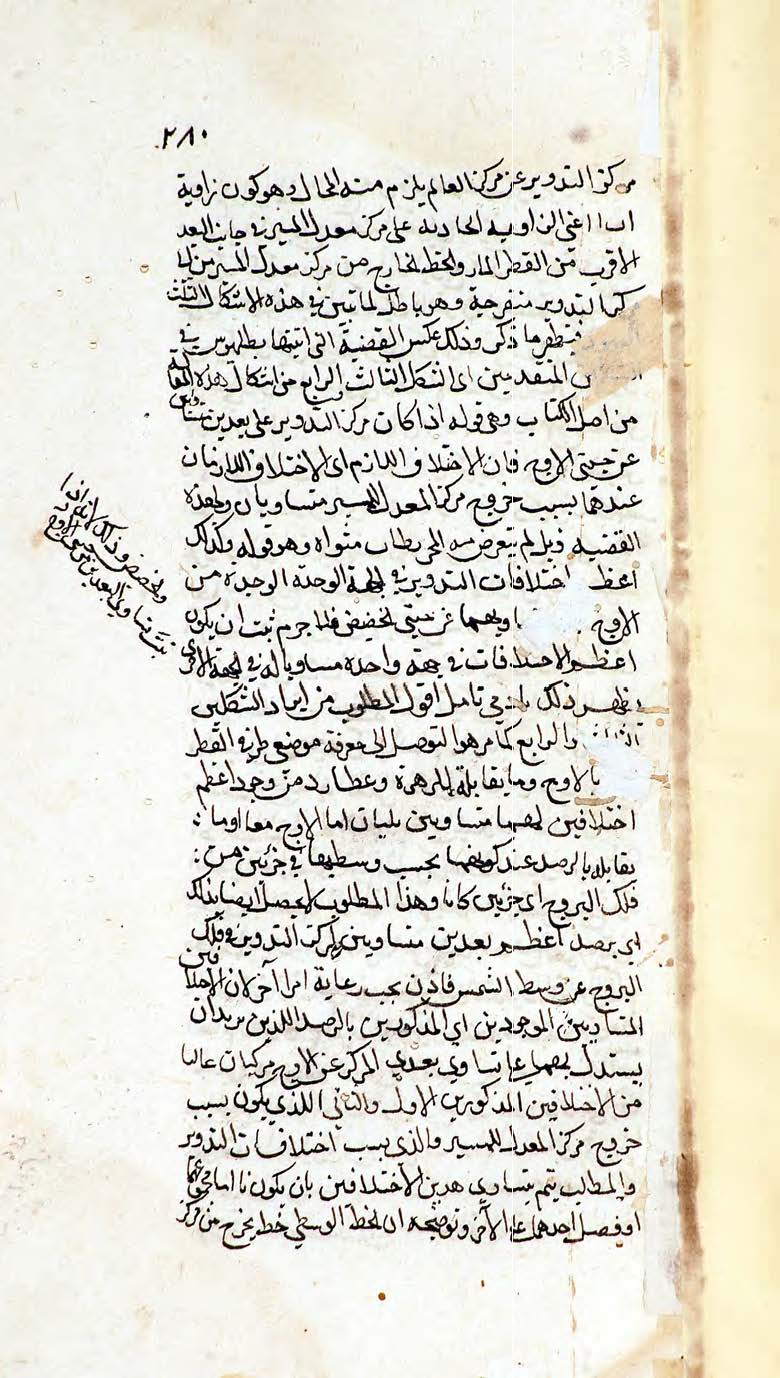 ٢٨٠
مركز التدوير عن مركز العالم يلزم منه المحال وهو كون زاوية
اب ا اعني الزاوية الحادثه على مركز معدل المسير في جانب البعد
الاقرب من القطر المار والخط الخارج من مركز معدل المسير الى
التدوير منفرجة وهو باطل لما تبين في هذه الاشكال الثلث
ما ذكر وذلك عكس القضية التي اثبتها بطلميوس في
المتقدمين اى الشكل الثالث و الرابع من اشكال هذه المقالة
من اصل الكتاب وهي قوله اذا كان مركز التدوير على بعدين متساويين
عن جنبتي الاوج فان الاختلاف اللازم اى الاختلافان اللازمان
عندهما بسبب خروج مركز المعدل للمسير متساويان ولهذه
القضيه ذيل لم يتعرض له المحرر بطاب مثواه وهو قوله وكذلك
اعظم اختلافات التدوير في الجهة الواحدة من
الاوج عن جنبتي الحضيض فلا جرم ثبت ان يكون
اعظم الاختلافات في جهة واحده مساويا له في الجهة الاخرى
يظهر ذلك بادنى تامل اقول المطلوب من ايراد الشكلين
الثالث والرابع كما مر هو التوصل الى معرفة موضع طرفي القطر
بالاوج وما يقابله للزهرة وعطارد من وجود اعظم
اختلافين لهما متساويين يليان اما الاوج معا او ما
يقابله بالرصد عند كونهما بحسب وسطيهما في جزئين من
فلك البروج اى جزئين كانا وهذا المطلوب لا يحصل ايضا بذلك
اى برصد اعظم بعدين متساويين لمركز التدوير في فلك
البروج عن وسط الشمس فاذن يجب رعاية امر آخر لان الاختلافين
المتساويين الموجودين اي المذكورين بالرصد اللذين يريدان
يستدل بهما على تساوي بعدي المركز عن الاوج مركبان غالبا
من الاختلافين المذكورين الاول والثاني اللذي يكون بسبب
خروج مركز المعدل للمسير والذى بسبب اختلافات التدوير
والمطالب يتم بتساوي هذين الاختلافين بان يكونا اما مجموعهما
او فصل احدهما على الآخر وتوضيحه ان الخط الوسطي خط يخرج من مركز
والحضيض وذلك لانه اذا
ثبت تساوي البعدين عن جنبتي الاوج